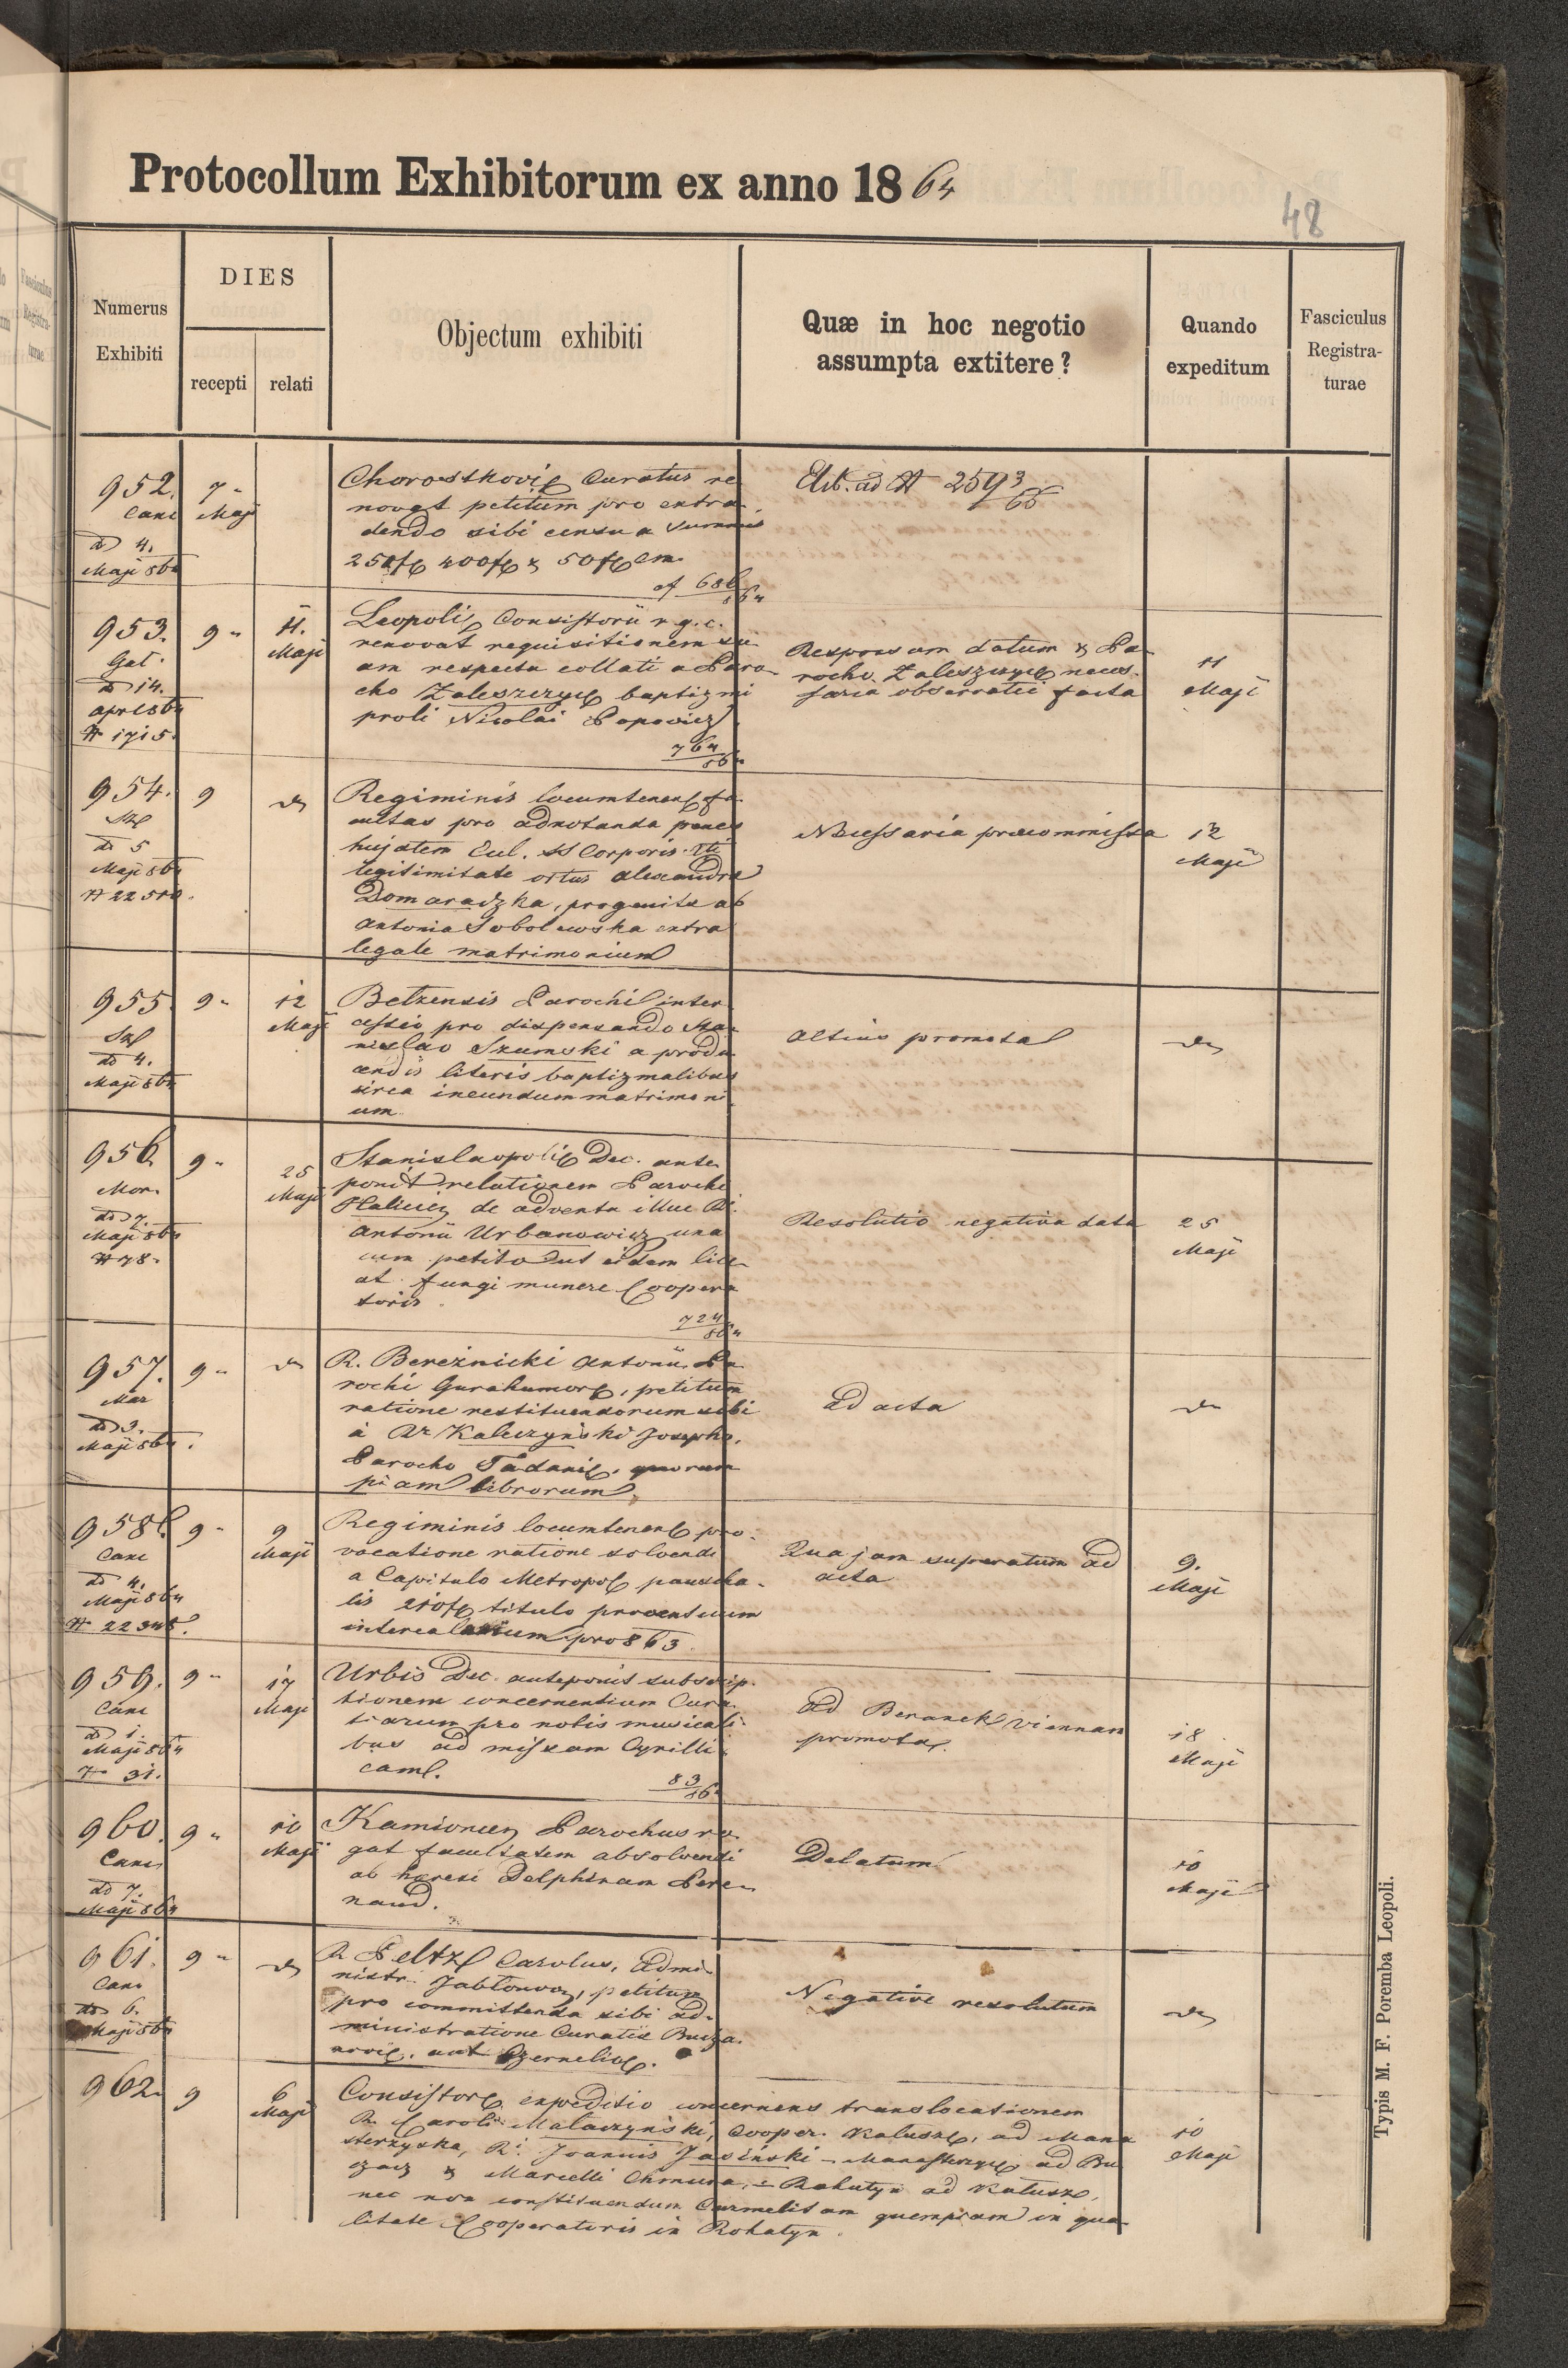 Protocollum Exhibitorum ex anno 1864
48
Numerus Exhibiti
DIES
recepti
relati
Objectum exhibiti
Quæ in hoc negotio assumpta extitere?
Quando expeditum
Fasciculus Registra-turae
952.
Canc
4.
Maji 864
7
Maji
Chorostkovi Curatus re
novat petitum pro extra
dendo sibi censu a Summis
250f 400f & 50f Cm.
Exh. ad N 2593/65
953.
Gal.
14.
April 864
N 1715.
9
11.
Maji
Leopoli Consistorii r.g.c.
renovat requisitionem su
am respectu collati a Paro
cho Zaleszczyc baptizmi
proli Nicolai Popowicz
764/864
Responsum datum & Pa
rocho Zaleszczyc neces-
saria observatii facta
11
Maji
954.
5
Maji 864
9
do
Regiminis locumtenen fa
cultas pro adnotanda penes
hujatem Eccl. SS Corporis Xti
legitimitate ortus Alexandra
Domaradzka, progenita ab
Antonia Sobolewska extra
legale matrimonium
Necessaria praecommissa
12
Maji
955.
4.
Maji 864
9
12
Maji
Belzensis Parochi inter
cessio pro dispensando Sta
nislao Szumski a produ
cendis literis baptizmalibus
circa ineundum matrimoni
um
Altius promota
do
956
Mon.
7.
Maji 864
N 78.
9
25
Maji
Stanislaopoli Dec. ante
ponit relationem Parochi
Halicien de adventu illuc R.
Antonii Urbanowicz una
cum petito ut eidem lice
at fungi munere Coopera
toris.
724/864
Resolutio negativa data
25
Maji
957.
Mar
3.
Maji 864.
9
do
R. Bereźnicki Antonii Pa
rochi Gurahumor, petitum
ratione restituendorum sibi
à R. Kaleczyński Josepho,
Parocho Fadani, quorum
piam librorum.
Ad acta
do
958
Canc
4.
Maji 864
9
9
Maji
Regiminis locumtenen pro
vocatione ratione solvendi
a Capitulo Metropol pauscha
lis 210f titulo proventuum
intercalarium pro 863.
Qua jam superatum ad
acta
9.
Maji
959.
Canc
1.
Maji 864
N 31.
9
17
Maji
Urbis Dec. anteponit subscrip-
tionem concernentium Cura
tiarum pro notis musicali
bus ad missam Cyrilli
cam.
83/864
Ad Beranek Viennam
promota.
18
Maji
960.
Canc
7.
Maji 864
9
10
Maji
Kamioncen Parochus ro
gat facultatem absolvendi
ab heresi Delphinam Pere
naud.
Delatum
10
Maji
961.
Canc
6.
Maji 864
9
do
R. Peltz Carolus, Admi
nistr. Jabłonov, petitum
pro committenda sibi ad-
ministratione Curatiæ Bucza
aut Czerneli.
Negative resolutum
do
962.
9
6
Maji
Consistor expeditio concernens translocationem
R. Caroli Malaczyński, Cooper. Kalusz, ad Mona
sterzyska, R. Joannis Jasiński – Monasterzys ad Bu
czacz & Marcelli Chmura, – Rohatyn ad Kałusz,
nec non constituendum Carmelitam quempiam in qua
litate Cooperatoris in Rohatyn.
10
Maji
Typis M. F. Poremba Leopoli.